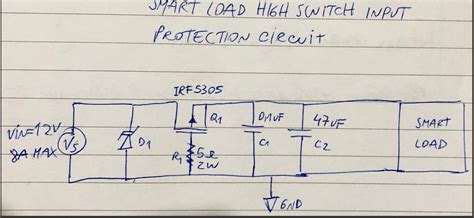 SMART LOAD HIGH SWITCH INPUT
PROTECTION CIRCUIT
IRF5305
Vin=12V
8A MAX
Vs
D1
Q1
R1
5Ω
2W
0.1uF
C1
47uF
C2
SMART
LOAD
GND